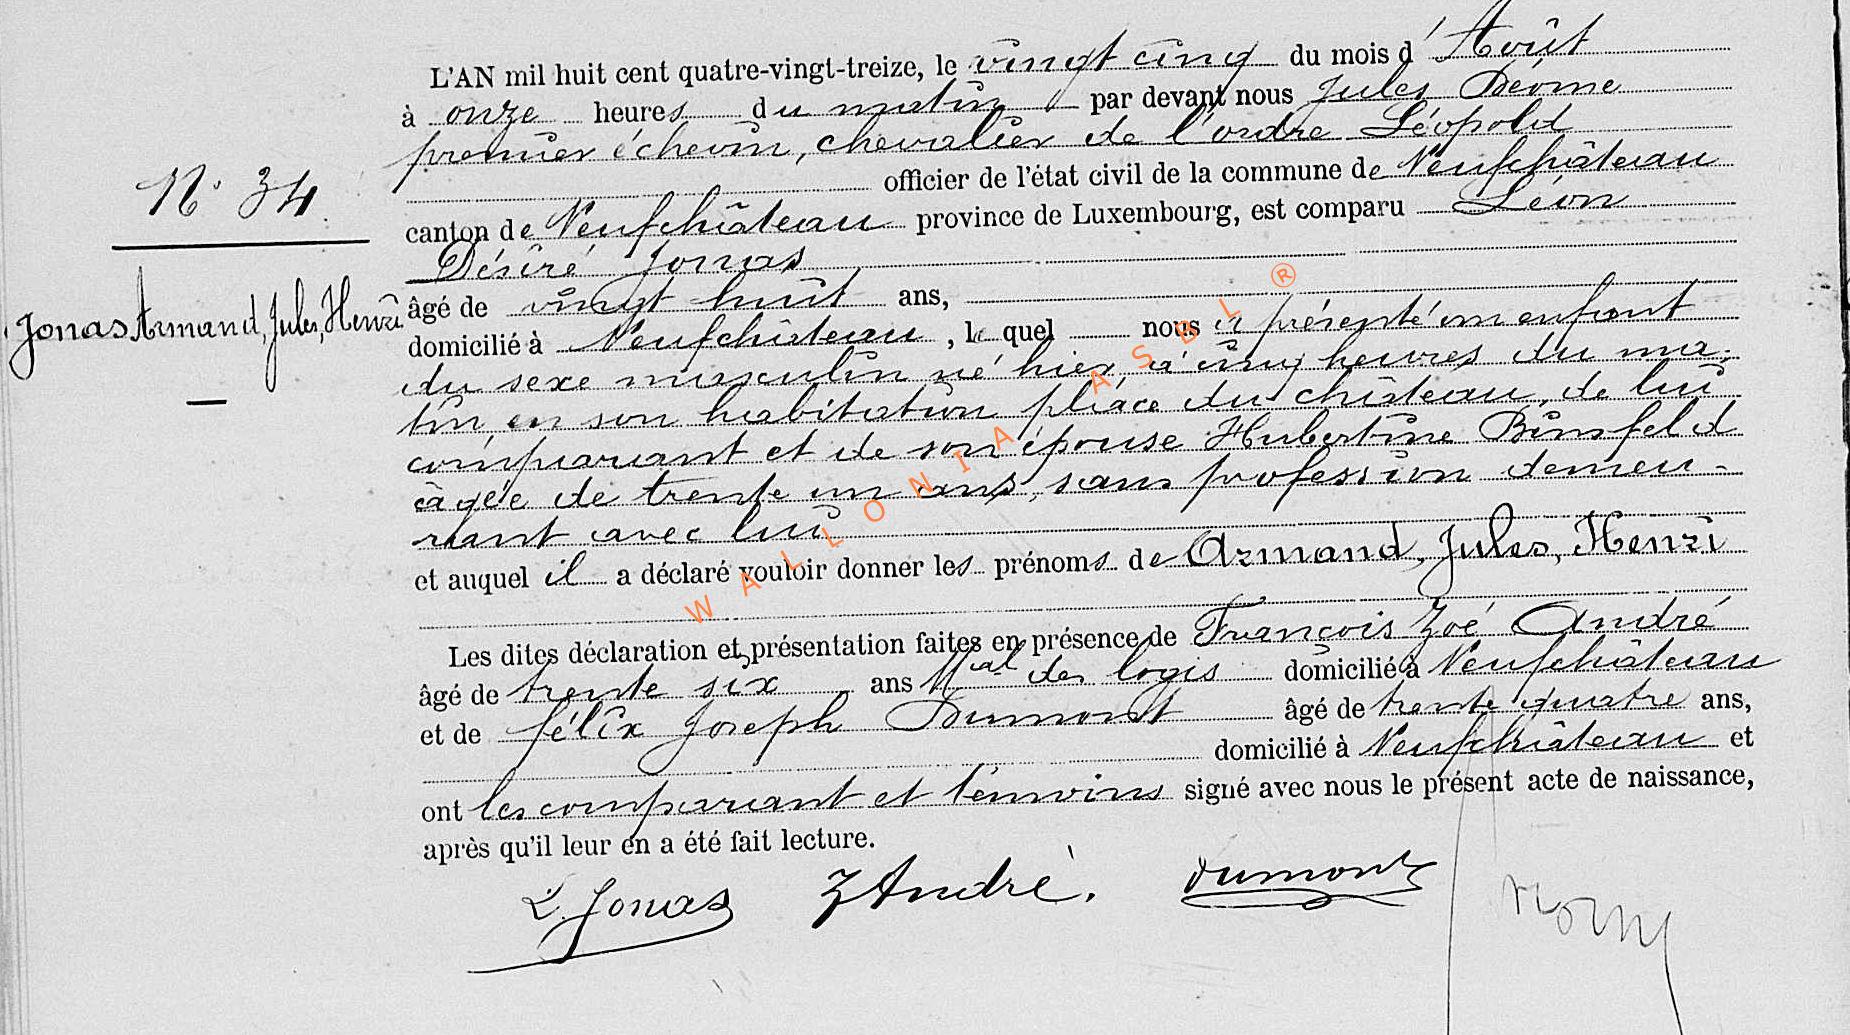 L'AN mil huit cent quatre-vingt-treize, le vingt cinq du mois d'Août
à onze heures du matin par devant nous Jules Déome
premier échevin, chevalier de l'ordre Léopold
officier de l'état civil de la commune de Neufchâteau
canton de Neufchâteau province de Luxembourg, est comparu Léon
Désiré Jonas
âgé de vingt huit ans,
domicilié à Neufchâteau, le quel nous a présenté un enfant
du sexe masculin né hier à cinq heures du ma-
tin, en son habitation place du château, de lui
comparant et de son épouse Hubertine Binsfeld
âgée de trente un ans, sans profession demeu-
rant avec lui
et auquel il a déclaré vouloir donner les prénoms de Armand, Jules, Henri
Les dites déclaration et présentation faites en présence de François Zoé André
âgé de trente six ans Mal des logis domicilié à Neufchâteau
et de félix Joseph Dumont âgé de trente quatre ans,
domicilié à Neufchâteau et
ont les comparant et témoins signé avec nous le présent acte de naissance,
après qu'il leur en a été fait lecture.
L. Jonas ZAndré. Dumont
N° 34
Jonas Armand, Jules, Henri
WALLONIA ASBL ®